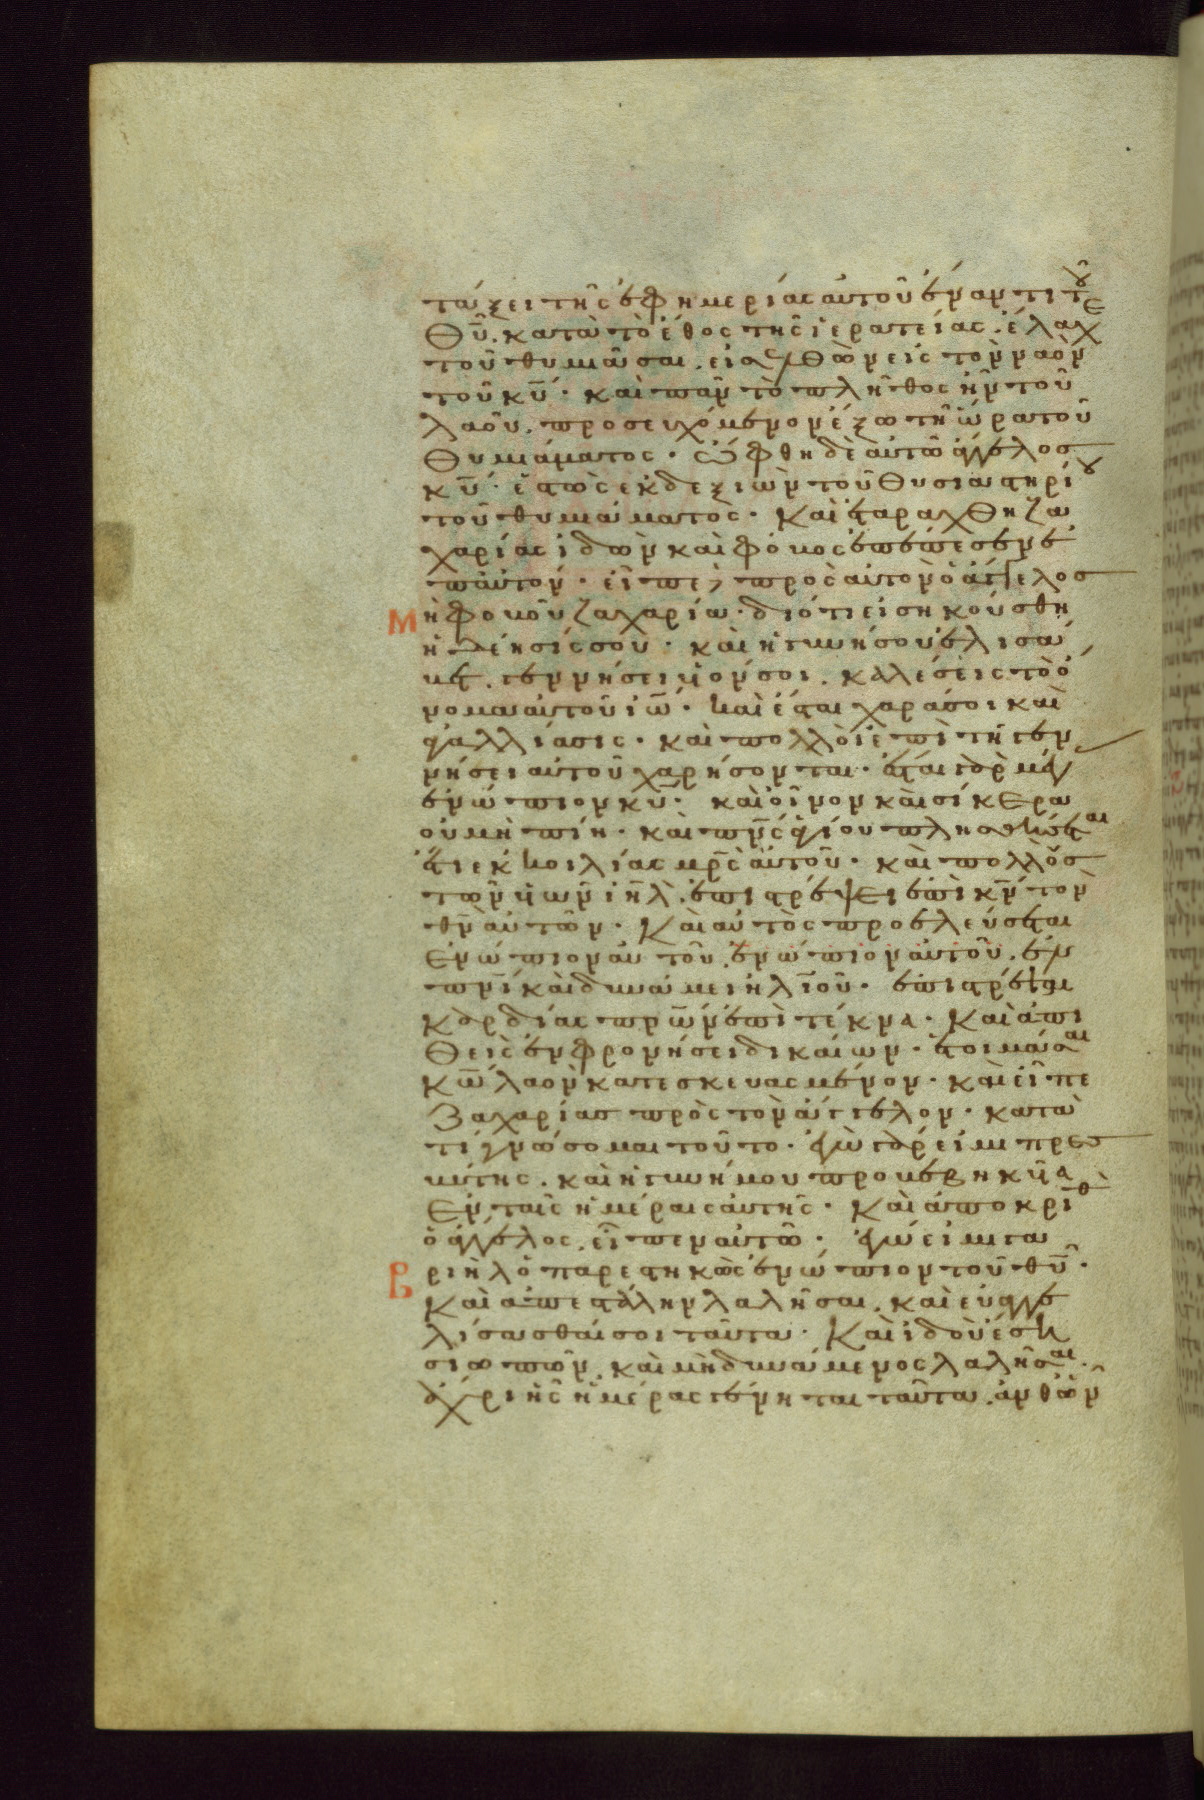 τάξει τῆς ἐφημερίας αὐτοῦ ἐναντι τοῦ
θῦ. κατὰ τὸ ἔθος τῆς ἱερατείας. ἔλαχε
τοῦ θυμιᾶσαι. εἰσελθὼν εἰς τὸν ναὸν
τοῦ κῦ. καὶ πᾶν τὸ πλῆθος ἦν τοῦ
λαοῦ. προσευχόμενον ἔξω τῆ ὥρα τοῦ
θυμιάματος. ὤφθη δὲ αὐτῶ ἄγγελος
κῦ. ἑστὼς ἐκ δεξιῶν τοῦ θυσιαστηρίου
τοῦ θυμιάματος. καὶ ἐταράχθη ζα
χαρίας ἰδὼν καὶ φόβος ἐπέπεσεν ἐ
π αὐτόν. εἶπε δὲ πρὸς αὐτὸν ὁ ἄγγελος
μὴ φοβοῦ ζαχαρία. διότι εἰσηκούσθη
ἡ δέησίς σου. καὶ ἡ γυνή σου ἐλισά
βετ. γεννήσει υἱόν σοι. καλέσεις τὸ ὄ
νομα αὐτοῦ ἰῶ. καὶ ἔσται χαρά σοι καὶ
ἀγαλλίασις. καὶ πολλοὶ ἐπὶ τῆ γεν
νήσει αὐτοῦ χαρήσονται. ἔσται γὰρ μέγας
ἐνώπιον κῦ. καὶ οἶνον καὶ σίκερα
οὐ μὴ πίη. καὶ πνς ἁγίου πλησθήσεται
ἔτι ἐκ κοιλίας μρς αὐτοῦ. καὶ πολλοὺς
τῶν υἱῶν ιηλ. ἐπιστρέψει ἐπὶ κν τὸν
θν αὐτῶν. καὶ αὐτὸς προελεύσεται
ἐνώπιον αὐτοῦ. ἐνώπιον αὐτοῦ. ἐν
πνι καὶ δυνάμει ἠλιοῦ. ἐπιστρέψαι
καρδίας πρων ἐπὶ τέκνα. καὶ ἀπι
θεῖς ἐν φρονήσει δικαίων. ἑτοιμάσαι
κω λαὸν κατεσκευασμένον. καὶ εἶπε
ζαχαρίας πρὸς τὸν ἄγγελον. κατὰ
τί γνώσομαι τοῦτο. ἐγὼ γάρ εἰμι πρεσ
βύτης. καὶ ἡ γυνή μου προβεβηκυῖα
ἐν ταῖς ἡμέραις αὐτῆς. καὶ ἀποκριθεὶς
ὁ ἄγγελος. εἶπεν αὐτῶ. ἐγώ εἰμι γα
βριὴλ ὁ παρεστηκὼς ἐνώπιον τοῦ θῦ.
καὶ ἀπεστάλην λαλῆσαι. καὶ εὐαγγε
λίσασθαί σοι ταῦτα. καὶ ἰδοὺ ἔση
σιωπῶν. καὶ μὴ δυνάμενος λαλῆσαι.
ἄχρι ἧς ἡμέρας γένηται ταῦτα. ἀνθ ὧν